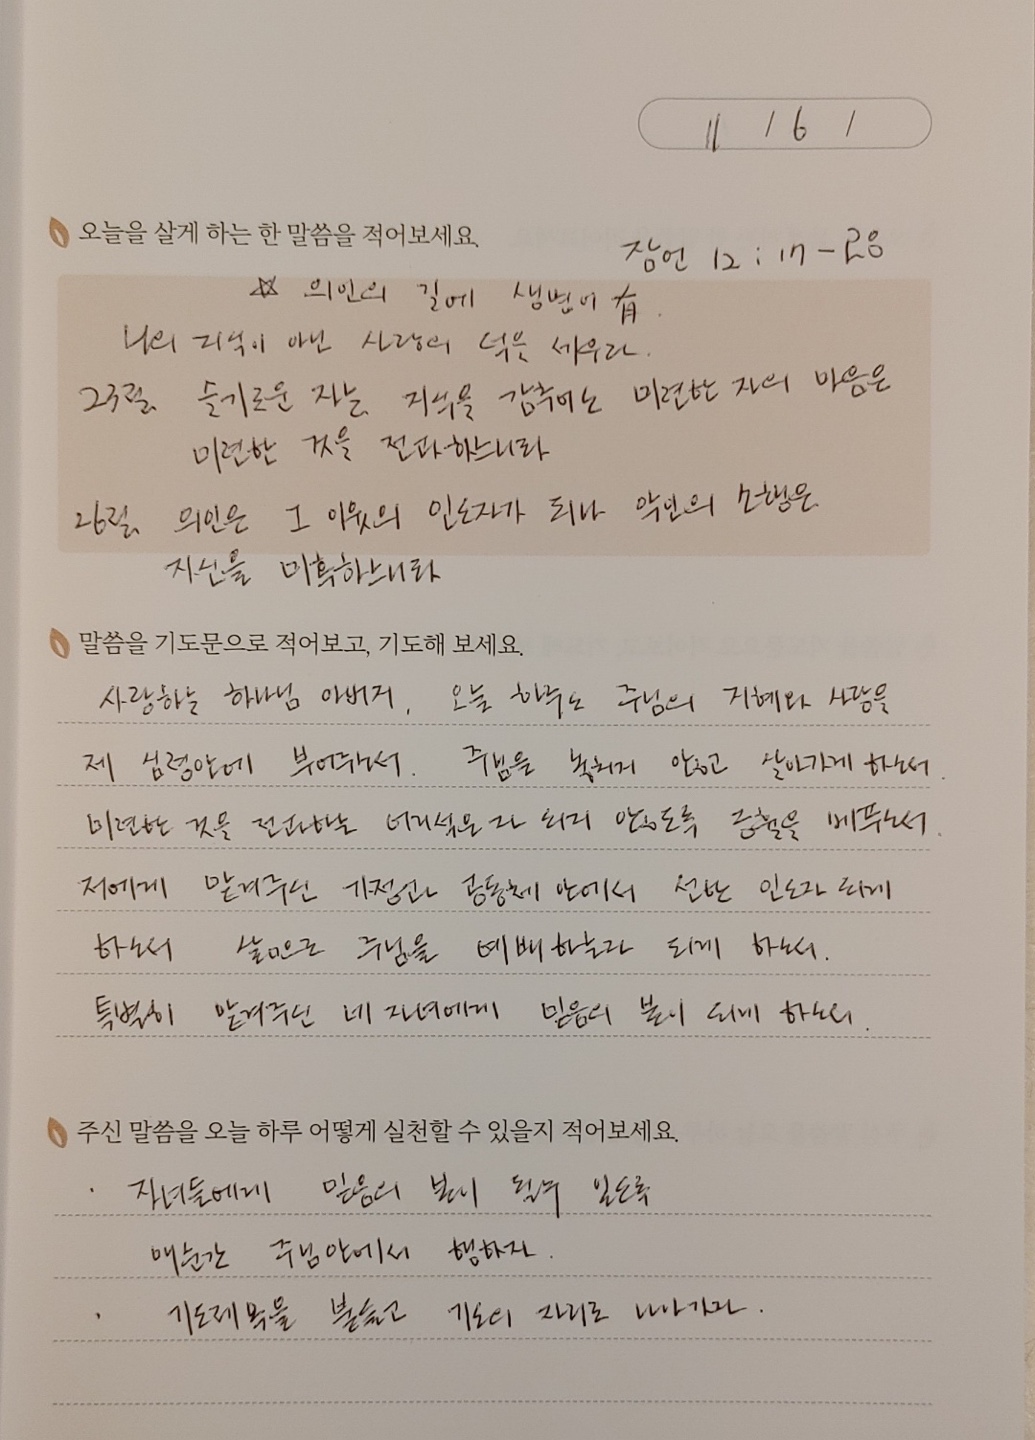 11 / 6 /
오늘을 살게 하는 한 말씀을 적어보세요.
잠언 12 : 17 - 28
☆ 의인의 길에 생명이 有.
나의 지식이 아닌 사랑의 덕을 세우라.
23절. 슬기로운 자는 지식을 감추어도 미련한 자의 마음은
미련한 것을 전파하느니라
26절. 의인은 그 이웃의 인도자가 되나 악인의 소행은
자신을 미혹하느니라
말씀을 기도문으로 적어보고, 기도해 보세요.
사랑하는 하나님 아버지, 오늘 하루도 주님의 지혜와 사랑을
제 심령안에 부어주소서. 주님을 놓치지 않고 살아가게 하소서.
미련한 것을 전파하는 어리석은 자 되지 않도록 긍휼을 베푸소서.
저에게 맡겨주신 가정과 공동체 안에서 선한 인도자 되게
하소서 삶으로 주님을 예배하는자 되게 하소서.
특별히 맡겨주신 네 자녀에게 믿음의 본이 되게 하소서.
주신 말씀을 오늘 하루 어떻게 실천할 수 있을지 적어보세요.
· 자녀들에게 믿음의 본이 될수 있도록
매순간 주님안에서 행하자.
· 기도제목을 붙들고 기도의 자리로 나아가자.